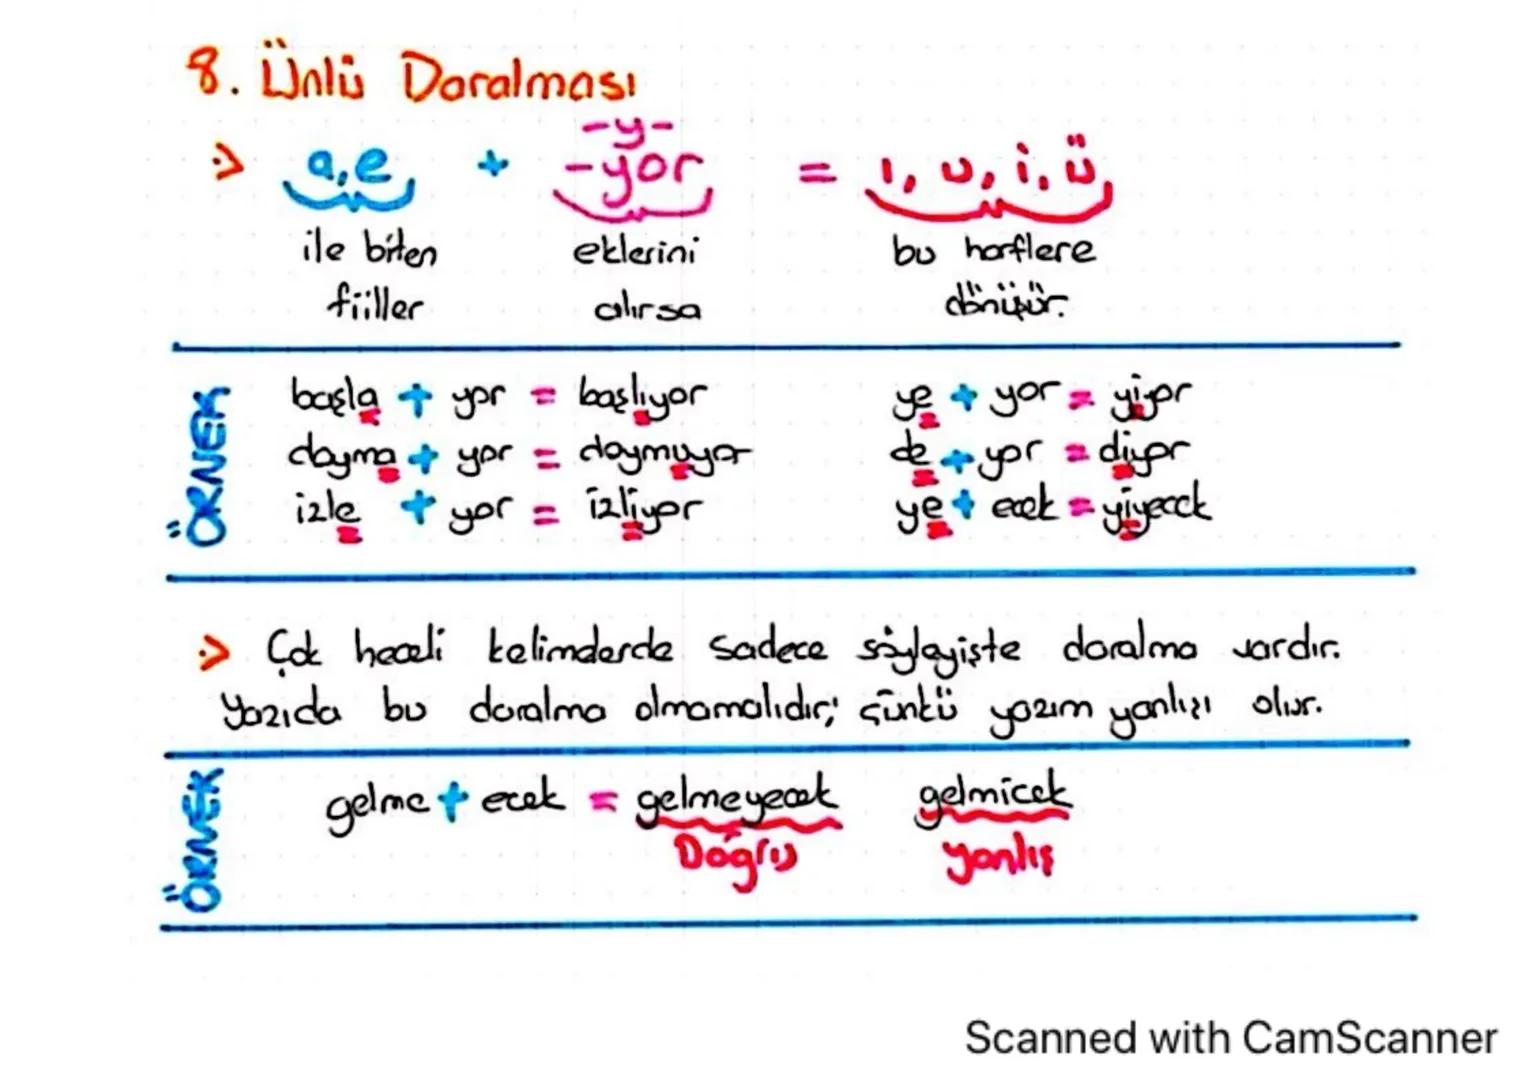 8. Ünlü Daralması
-y-
:> a,e, + -yor = ı, u, i, ü,
ile biten eklerini bu harflere
fiiller alırsa dönüşür.
ÖRNEK
başla + yor = başlıyor ye + yor = yiyor
doyma + yor = doymuyor de + yor = diyor
izle + yor = izliyor ye + ecek = yiyecek
:> Çok heceli kelimelerde sadece söyleyişte daralma vardır.
Yazıda bu daralma olmamalıdır; çünkü yazım yanlışı olur.
ÖRNEK
gelme + ecek = gelmeyecek gelmicek
Doğru yanlış
Scanned with CamScanner